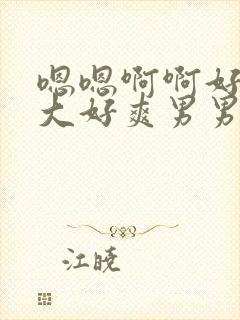 嗯嗯啊啊好
大好爽男男
江晓